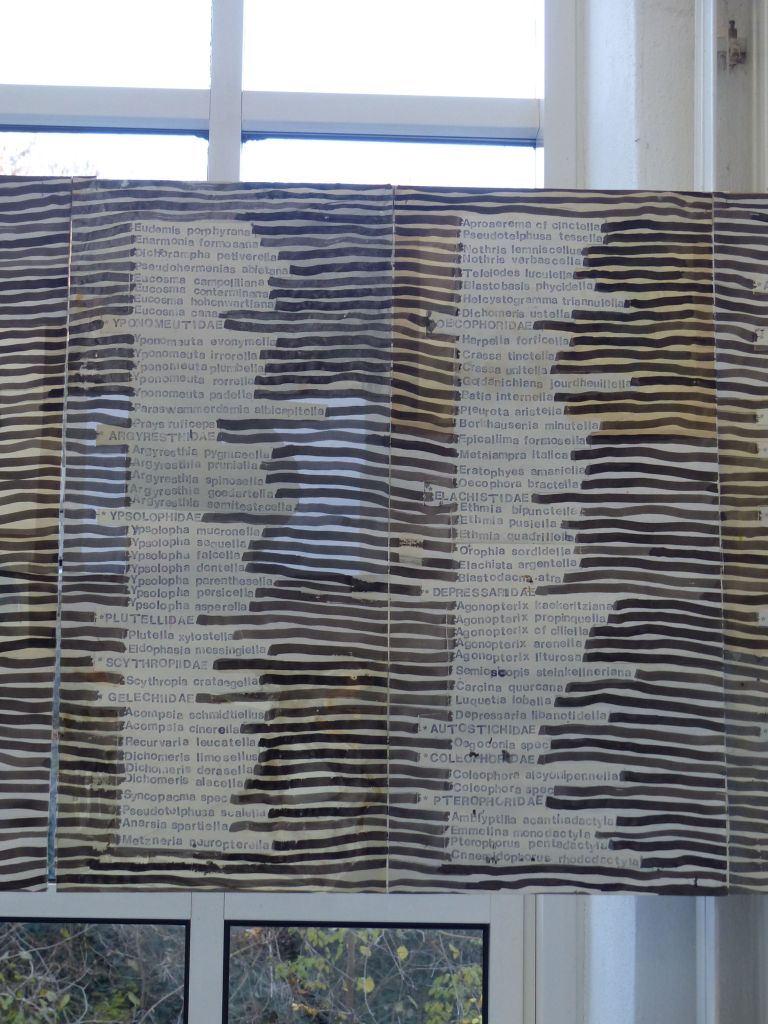 Eudemis porphyrana
Enarmonia formosana
Dichorampha petiverella
Pseudohermenias abietana
Eucosma campoliliana
Eucosma conterminana
Eucosma hohenwartiana
Eucosma cana
* YPONOMEUTIDAE
Yponomeuta evonymella
Yponomeuta irrorella
Yponomeuta plumbella
Yponomeuta rorrella
Yponomeuta padella
Paraswammerdamia albicapitella
Prays ruficeps
* ARGYRESTHIIDAE
Argyresthia pygmaeella
Argyresthia pruniella
Argyresthia spinosella
Argyresthia goedartella
Argyresthia semitestacella
* YPSOLOPHIDAE
Ypsolopha mucronella
Ypsolopha sequella
Ypsolopha falcella
Ypsolopha dentella
Ypsolopha parenthesella
Ypsolopha persicella
Ypsolopha asperella
* PLUTELLIDAE
Plutella xylostella
Eidophasia messingiella
* SCYTHROPIIDAE
Scythropia crataegella
* GELECHIIDAE
Acompsia schmidtiellus
Acompsia cinerella
Recurvaria leucatella
Dichomeris limosellus
Dichomeris derasella
Dichomeris alacella
Syncopacma spec
Pseudotelphusa scalella
Anarsia spartiella
Metzneria neuropterella
Aproaerema cf cinctella
Pseudotelphusa tessella
Nothris lemniscellus
Nothris verbascella
Teleiodes luculella
Blastobasis phycidella
Helcystogramma triannulella
Dichomeris ustella
OECOPHORIDAE
Harpella forficella
Crassa tinctella
Crassa unitella
Goidanichiana jourdheuillella
Batia internella
Pleurota aristella
Borkhausenia minutella
Epicallima formosella
Metalampra italica
Eratophyes amasiella
Oecophora bractella
* ELACHISTIDAE
Ethmia bipunctella
Ethmia pusiella
Ethmia quadrillella
Orophia sordidella
Elachista argentella
Blastodacna atra
* DEPRESSARIIDAE
Agonopterix kaekeritziana
Agonopterix propinquella
Agonopterix cf ciliella
Agonopterix arenella
Agonopterix liturosa
Semioscopis steinkellneriana
Carcina quercana
Luquetia lobella
Depressaria libanotidella
* AUTOSTICHIDAE
Oegoconia spec
* COLEOPHORIDAE
Coleophora alcyonipennella
Coleophora spec
* PTEROPHORIDAE
Amblyptilia acanthadactyla
Emmelina monodactyla
Pterophorus pentadactyla
Cnaemidophorus rhododactyla